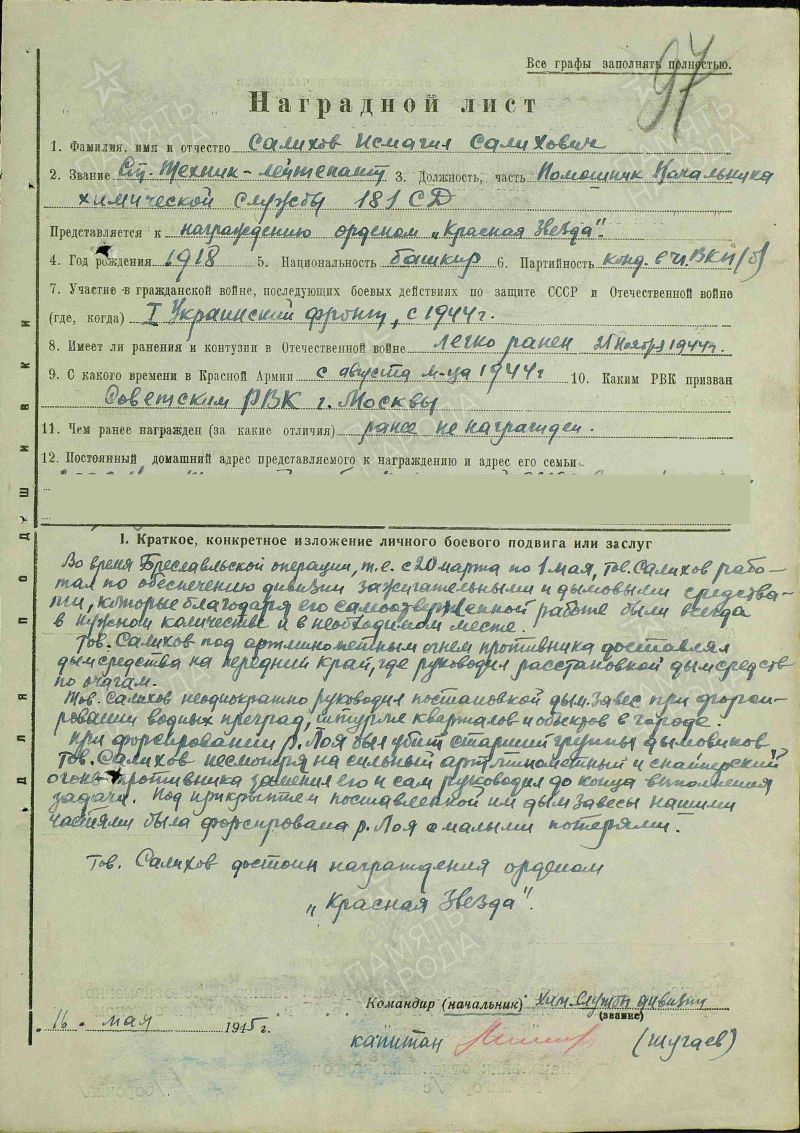 97
Все графы заполнять полностью.
Наградной лист
1. Фамилия, имя и отчество Салихов Исмагил Салихович
2. Звание Ст. Техник-лейтенант 3. Должность, часть Помошник Начальника
химической службы 181 СД
Представляется к награждению орденом „Красная Звезда".
4. Год рождения 1918 5. Национальность башкир 6. Партийность канд. в чл. ВКП/б/
7. Участие в гражданской войне, последующих боевых действиях по защите СССР и Отечественной войне
(где, когда) I Украинский фронт, с 1944 г.
8. Имеет ли ранения и контузии в Отечественной войне легко ранен 21 ноября 1944 г.
9. С какого времени в Красной Армии с августа м-ца 1944 г 10. Каким РВК призван
Советским РВК г. Москвы
11. Чем ранее награжден (за какие отличия) ранее не награжден.
12. Постоянный домашний адрес представляемого к награждению и адрес его семьи
I. Краткое, конкретное изложение личного боевого подвига или заслуг
Во время Бреславльской операции, т.е. с 20 марта по 1 мая, тов. Салихов рабо-
тал по обеспечению дивизии зажигательными и дымовыми средства-
ми, которые благодаря его самоотверженной работе были всегда
в нужном количестве и в необходимом месте.
Тов. Салихов под артминометным огнем противника доставлял
дымсредства на передний край, где руководил расстановкой дымсредств
по очагам.
Тов. Салихов неоднократно руководил постановкой дым. завес при форси-
ровании водных преград, штурме кварталов и объектов в городе.
При форсировании р. Лоя был убит старший группы дымовиков
Тов. Салихов несмотря на сильный артминометный и снайперский
огонь противника заменил его и сам руководил до конца выполнения
задачи. Под прикрытием поставленной им дым завесы нашими
частями была форсирована р. Лоя с малыми потерями.
Тов. Салихов достоин награждения орденом
„Красная Звезда".
Командир (начальник) Хим. службы дивизии
(звание)
„16. мая 1945 г.
капитан (Шугаев)
ДЛЯ ПОДШИВКИ
ПАМЯТЬ НАРОДА